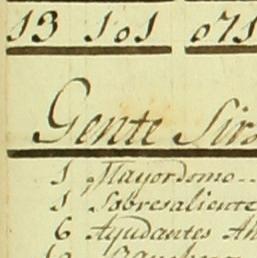 13 101 071
Gente Sirv
1 Mayordomo
1 Sobresaliente
6 Ayudantes